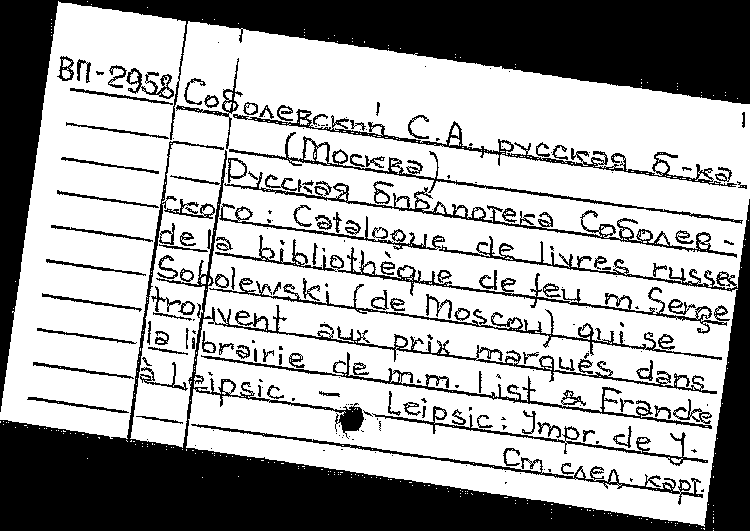 ВП-2958 Соболевский С.А., русская б-ка
(Москва).
Русская библиотека Соболев-
ского: Catalogue de livres russes
de la bibliothèque de feu m. Serge
Sobolewski (de Moscou) qui se
trouvent aux prix marqués dans
la librairie de m.m. List & Francke
à Leipsic. — Leipsic: Impr. de J.
См. след. карт.